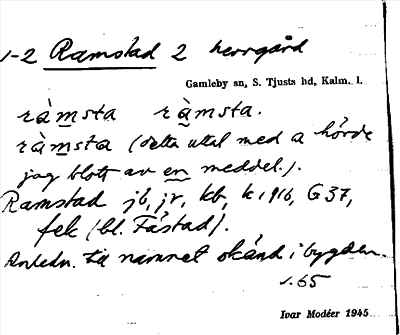 1-2 Ramstad 2 herrgård
Gamleby sn, S. Tjusts hd, Kalm. l.
ràmsta ràmsta.
ràmsta (detta uttal med a hörde
jag blott av en meddel.).
Ramstad jb, jr, kb, k 1916, G 37,
fek (bl. Fåstad).
Anledn. t. namnet okänd i bygden.
s. 65
Ivar Modéer 1945